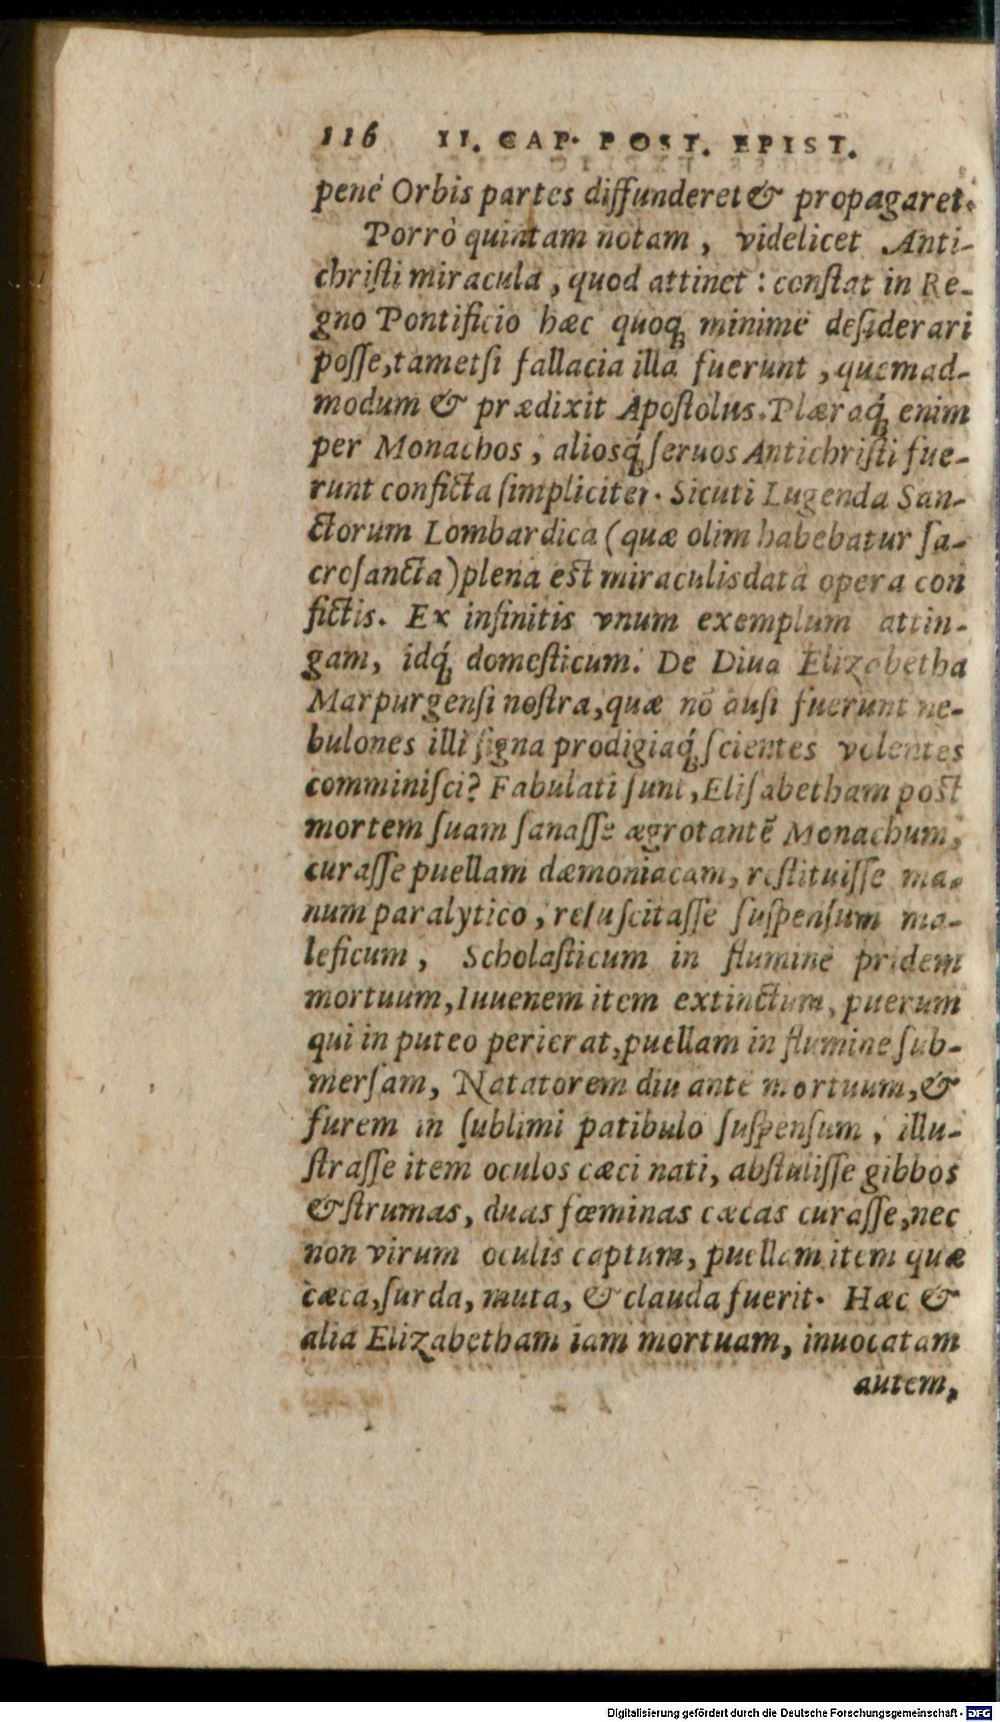 116 II. CAP. POST. EPIST.
pené Orbis partes diffunderet & propagaret.
Porrò quintam notam, videlicet Anti-
chriſti miracula, quod attinet: conſtat in Re-
gno Pontificio hæc quoq; minimè deſiderari
poſſe, tametſi fallacia illa fuerunt, quemad-
modum & prædixit Apoſtolus. Plæraq́; enim
per Monachos, aliosq́; ſeruos Antichriſti fue-
runt conficta ſimpliciter. Sicuti Lugenda San-
ctorum Lombardica (quæ olim habebatur ſa-
croſancta) plena eſt miraculis data opera con
fictis. Ex infinitis vnum exemplum attin-
gam, idq́; domeſticum. De Diua Elizabetha
Marpurgenſi noſtra, quæ nō auſi fuerunt ne-
bulones illi ſigna prodigiaq́; ſcientes volentes
comminiſci? Fabulati ſunt, Eliſabetham poſt
mortem ſuam ſanaſſe ægrotantē Monachum,
curaſſe puellam dæmoniacam, reſtituiſſe ma-
num paralytico, reſuſcitaſſe ſuſpenſum ma-
leficum, Scholaſticum in flumine pridem
mortuum, Iuuenem item extinctum, puerum
qui in puteo perierat, puellam in flumine ſub-
merſam, Natatorem diu ante mortuum, &
furem in ſublimi patibulo ſuſpenſum, illu-
ſtraſſe item oculos cæci nati, abſtuliſſe gibbos
& ſtrumas, duas fœminas cæcas curaſſe, nec
non virum oculis captum, puellam item quæ
cæca, ſurda, muta, & clauda fuerit. Hæc &
alia Elizabetham iam mortuam, inuocatam
autem,
Digitalisierung gefördert durch die Deutsche Forschungsgemeinschaft - DFG